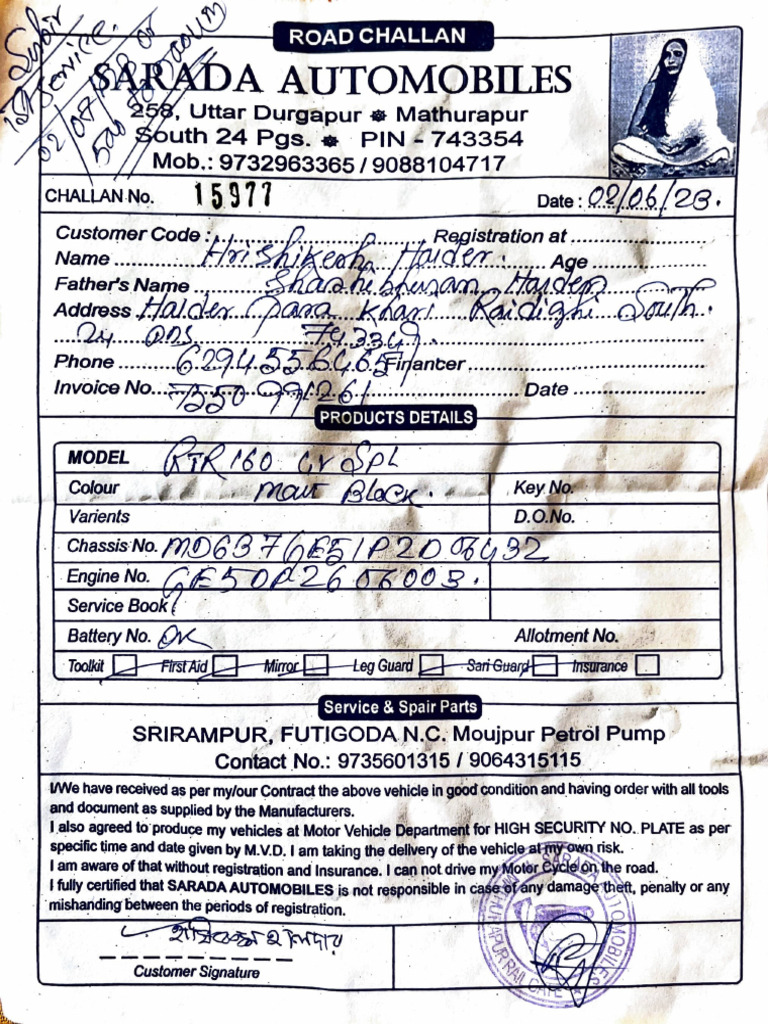 Subir
1st Service.
ROAD CHALLAN
SARADA AUTOMOBILES
258, Uttar Durgapur ❋ Mathurapur
South 24 Pgs. ❋ PIN - 743354
Mob.: 9732963365 / 9088104717
CHALLAN No. 15977 Date : 02/06/23.
Customer Code : Registration at
Name Hrishikesh Halder. Age
Father's Name Shashibhusan Halder
Address Halder Para Khari Raidighi South.
24 743349.
Phone 6294558465 Financer
Invoice No. 7550991261 Date
PRODUCTS DETAILS
MODEL RTR 160 4V SPL
Colour Matt Black. Key No.
Varients D.O.No.
Chassis No. MD637GE51P2D06432
Engine No. GE5DP2606003.
Service Book
Battery No. OK Allotment No.
Toolkit First Aid Mirror Leg Guard Sari Guard Insurance
Service & Spair Parts
SRIRAMPUR, FUTIGODA N.C. Moujpur Petrol Pump
Contact No.: 9735601315 / 9064315115
I/We have received as per my/our Contract the above vehicle in good condition and having order with all tools
and document as supplied by the Manufacturers.
I also agreed to produce my vehicles at Motor Vehicle Department for HIGH SECURITY NO. PLATE as per
specific time and date given by M.V.D. I am taking the delivery of the vehicle at my own risk.
I am aware of that without registration and Insurance. I can not drive my Motor Cycle on the road.
I fully certified that SARADA AUTOMOBILES is not responsible in case of any damage theft, penalty or any
mishanding between the periods of registration.
হৃষিকেশ হালদার
Customer Signature
SARADA AUTOMOBILES
MATHURAPUR RAIL GATE